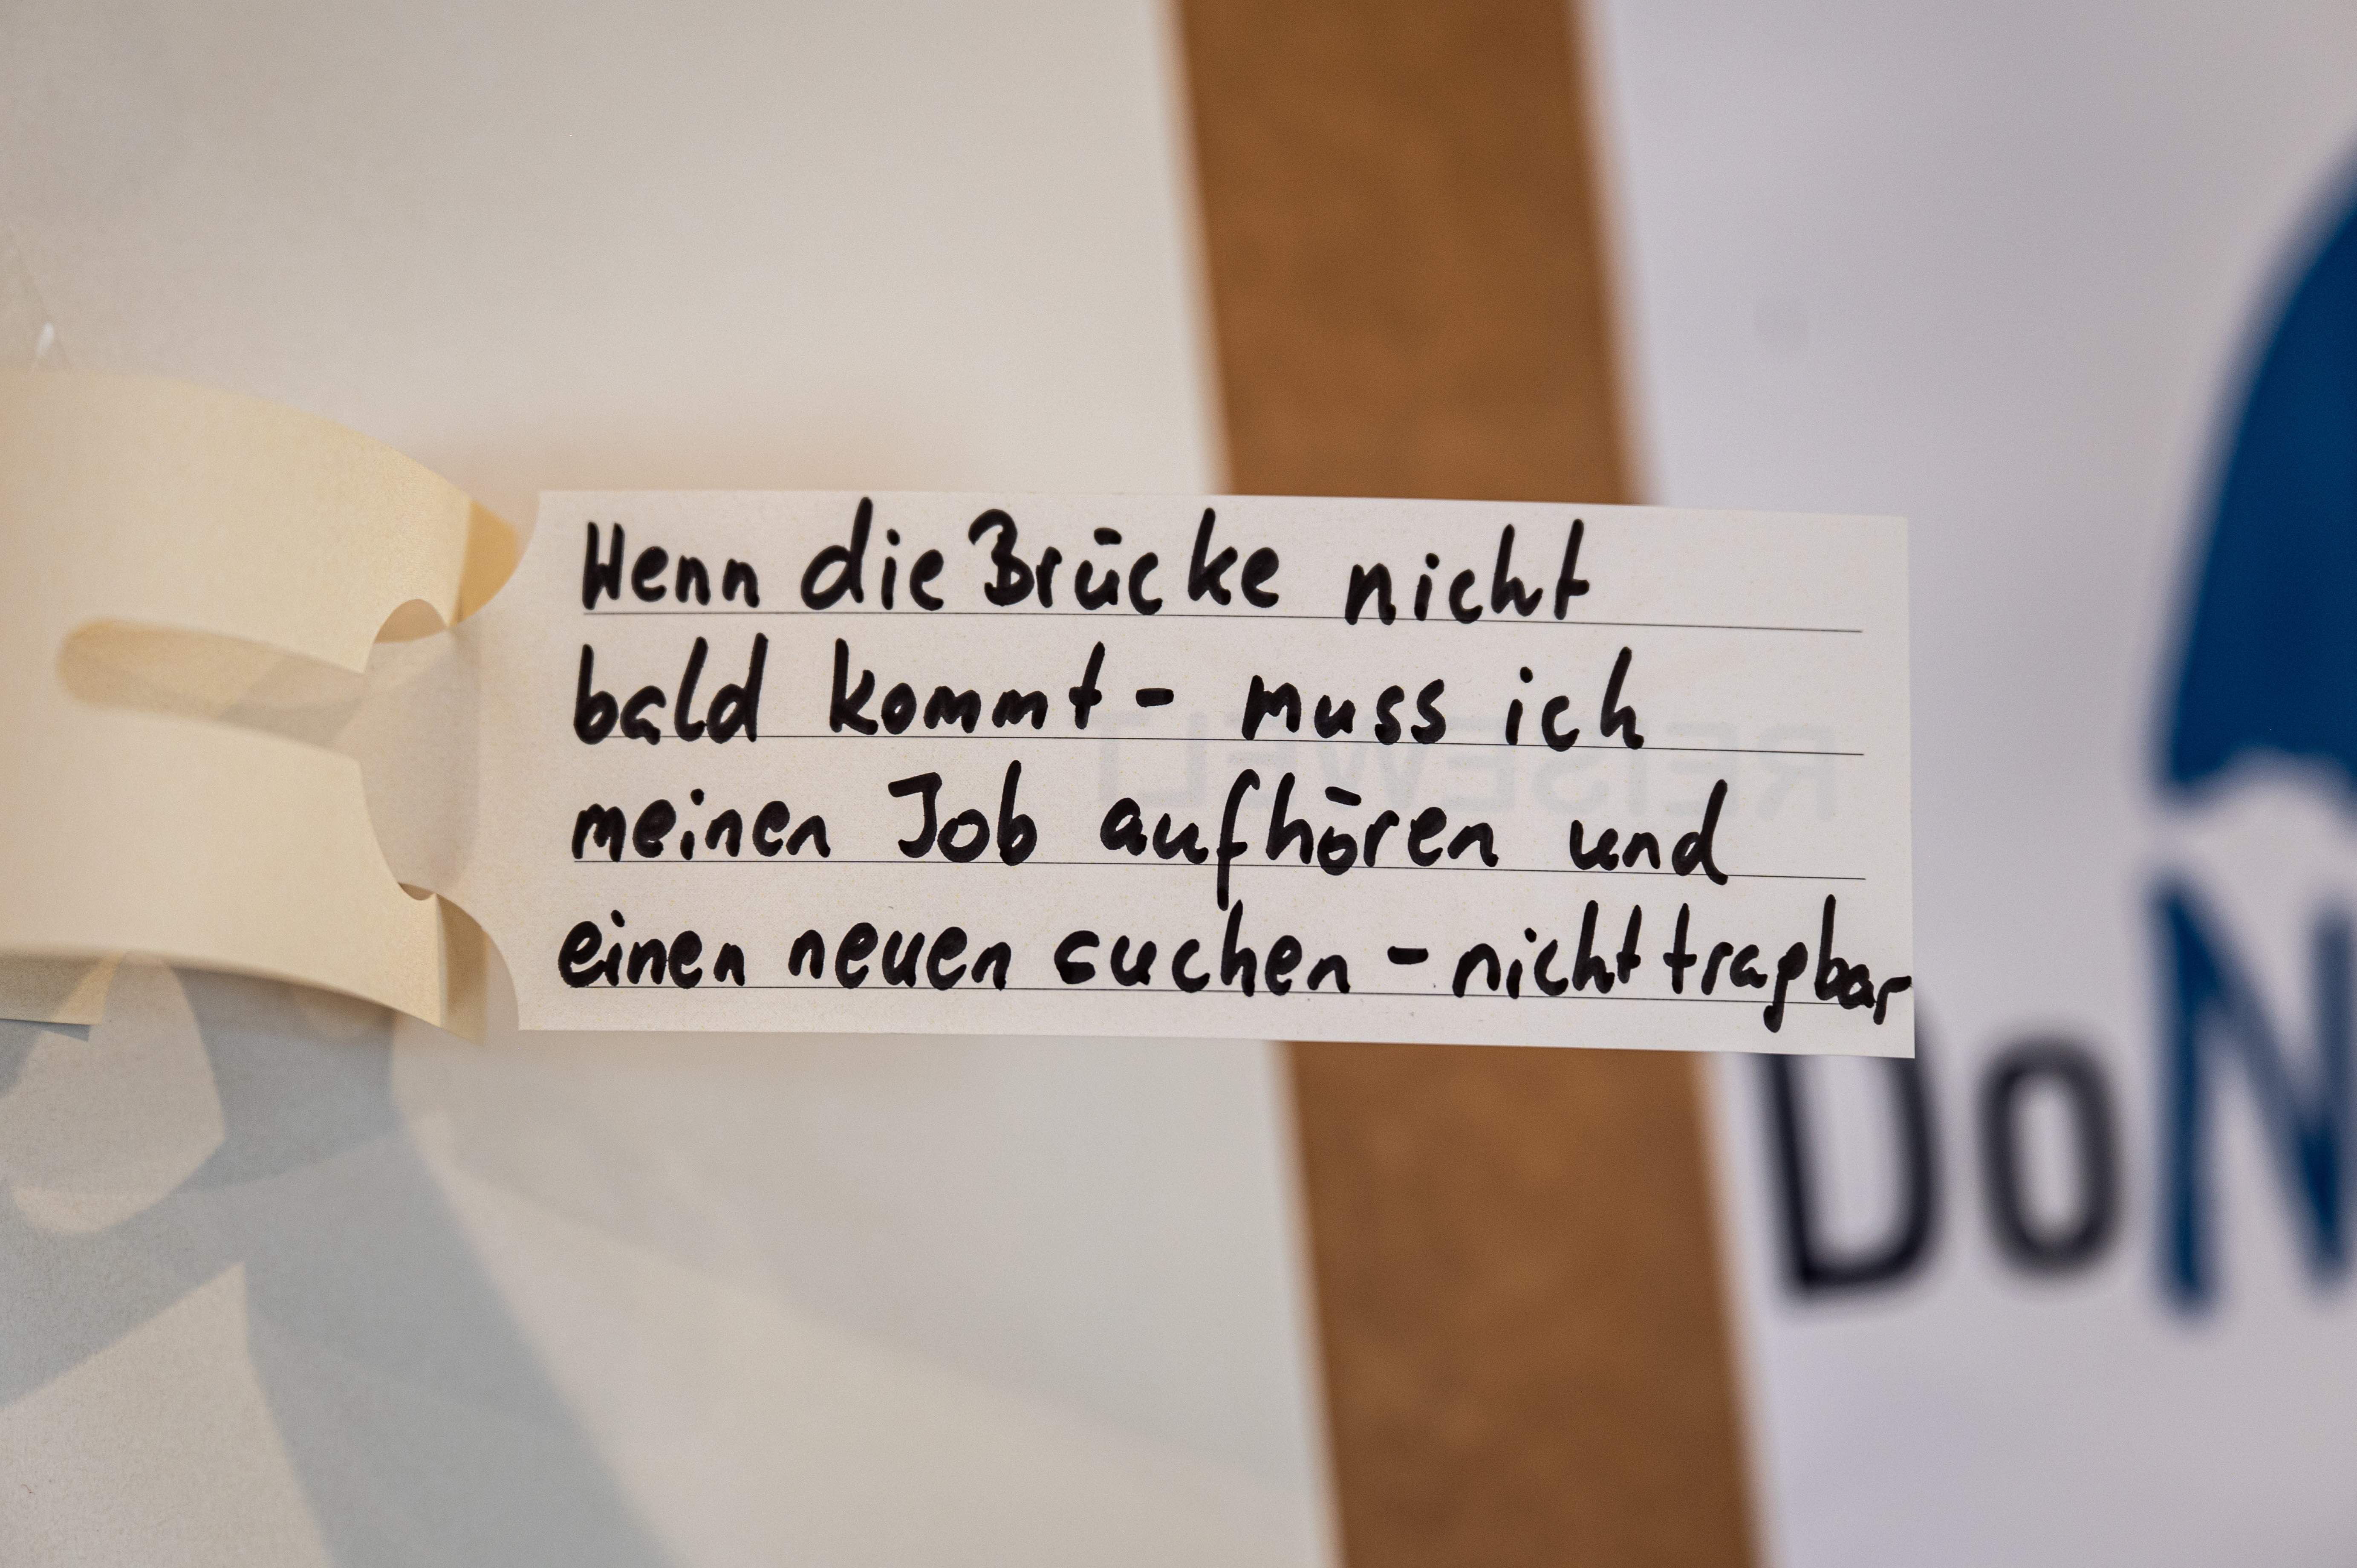 Wenn die Brücke nicht
bald kommt - muss ich
meinen Job aufhören und
einen neuen suchen - nicht tragbar
REISEWELT
DoN